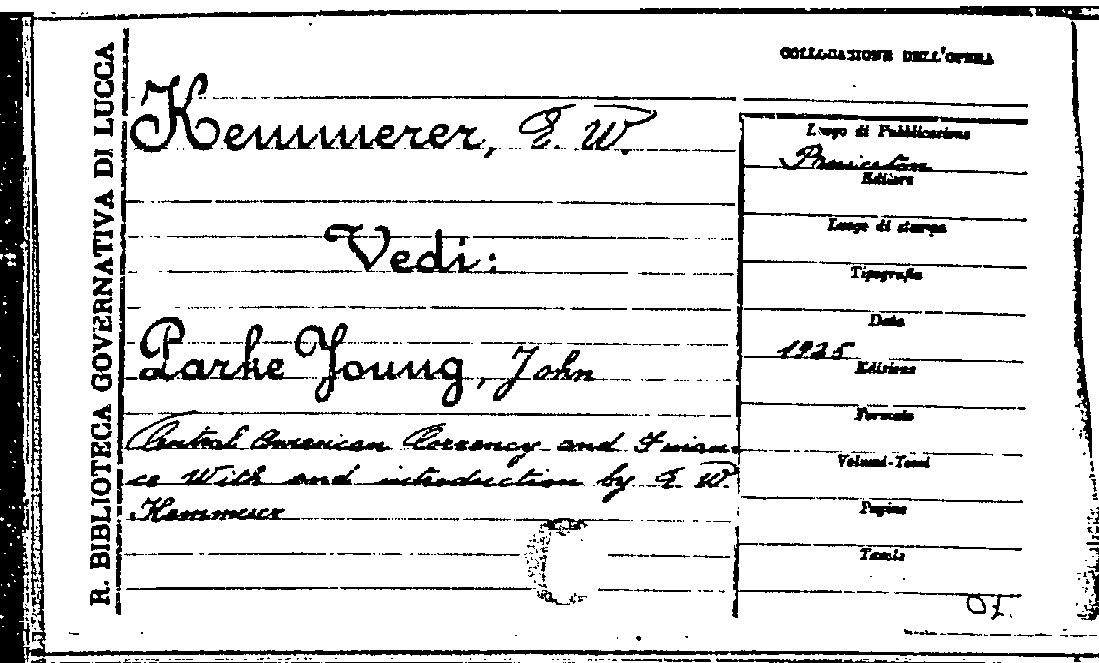 R. BIBLIOTECA GOVERNATIVA DI LUCCA
COLLOCAZIONE DELL'OPERA
Kemmerer, E. W.
Vedi:
Parke Young, John
Central American Currency and Finan-
ce With and introduction by E. W.
Kemmerer
Luogo di Pubblicazione
Princeton
Editore
Luogo di stampa
Tipografia
Data
1925
Edizione
Formato
Volumi-Tomi
Pagine
Tavole